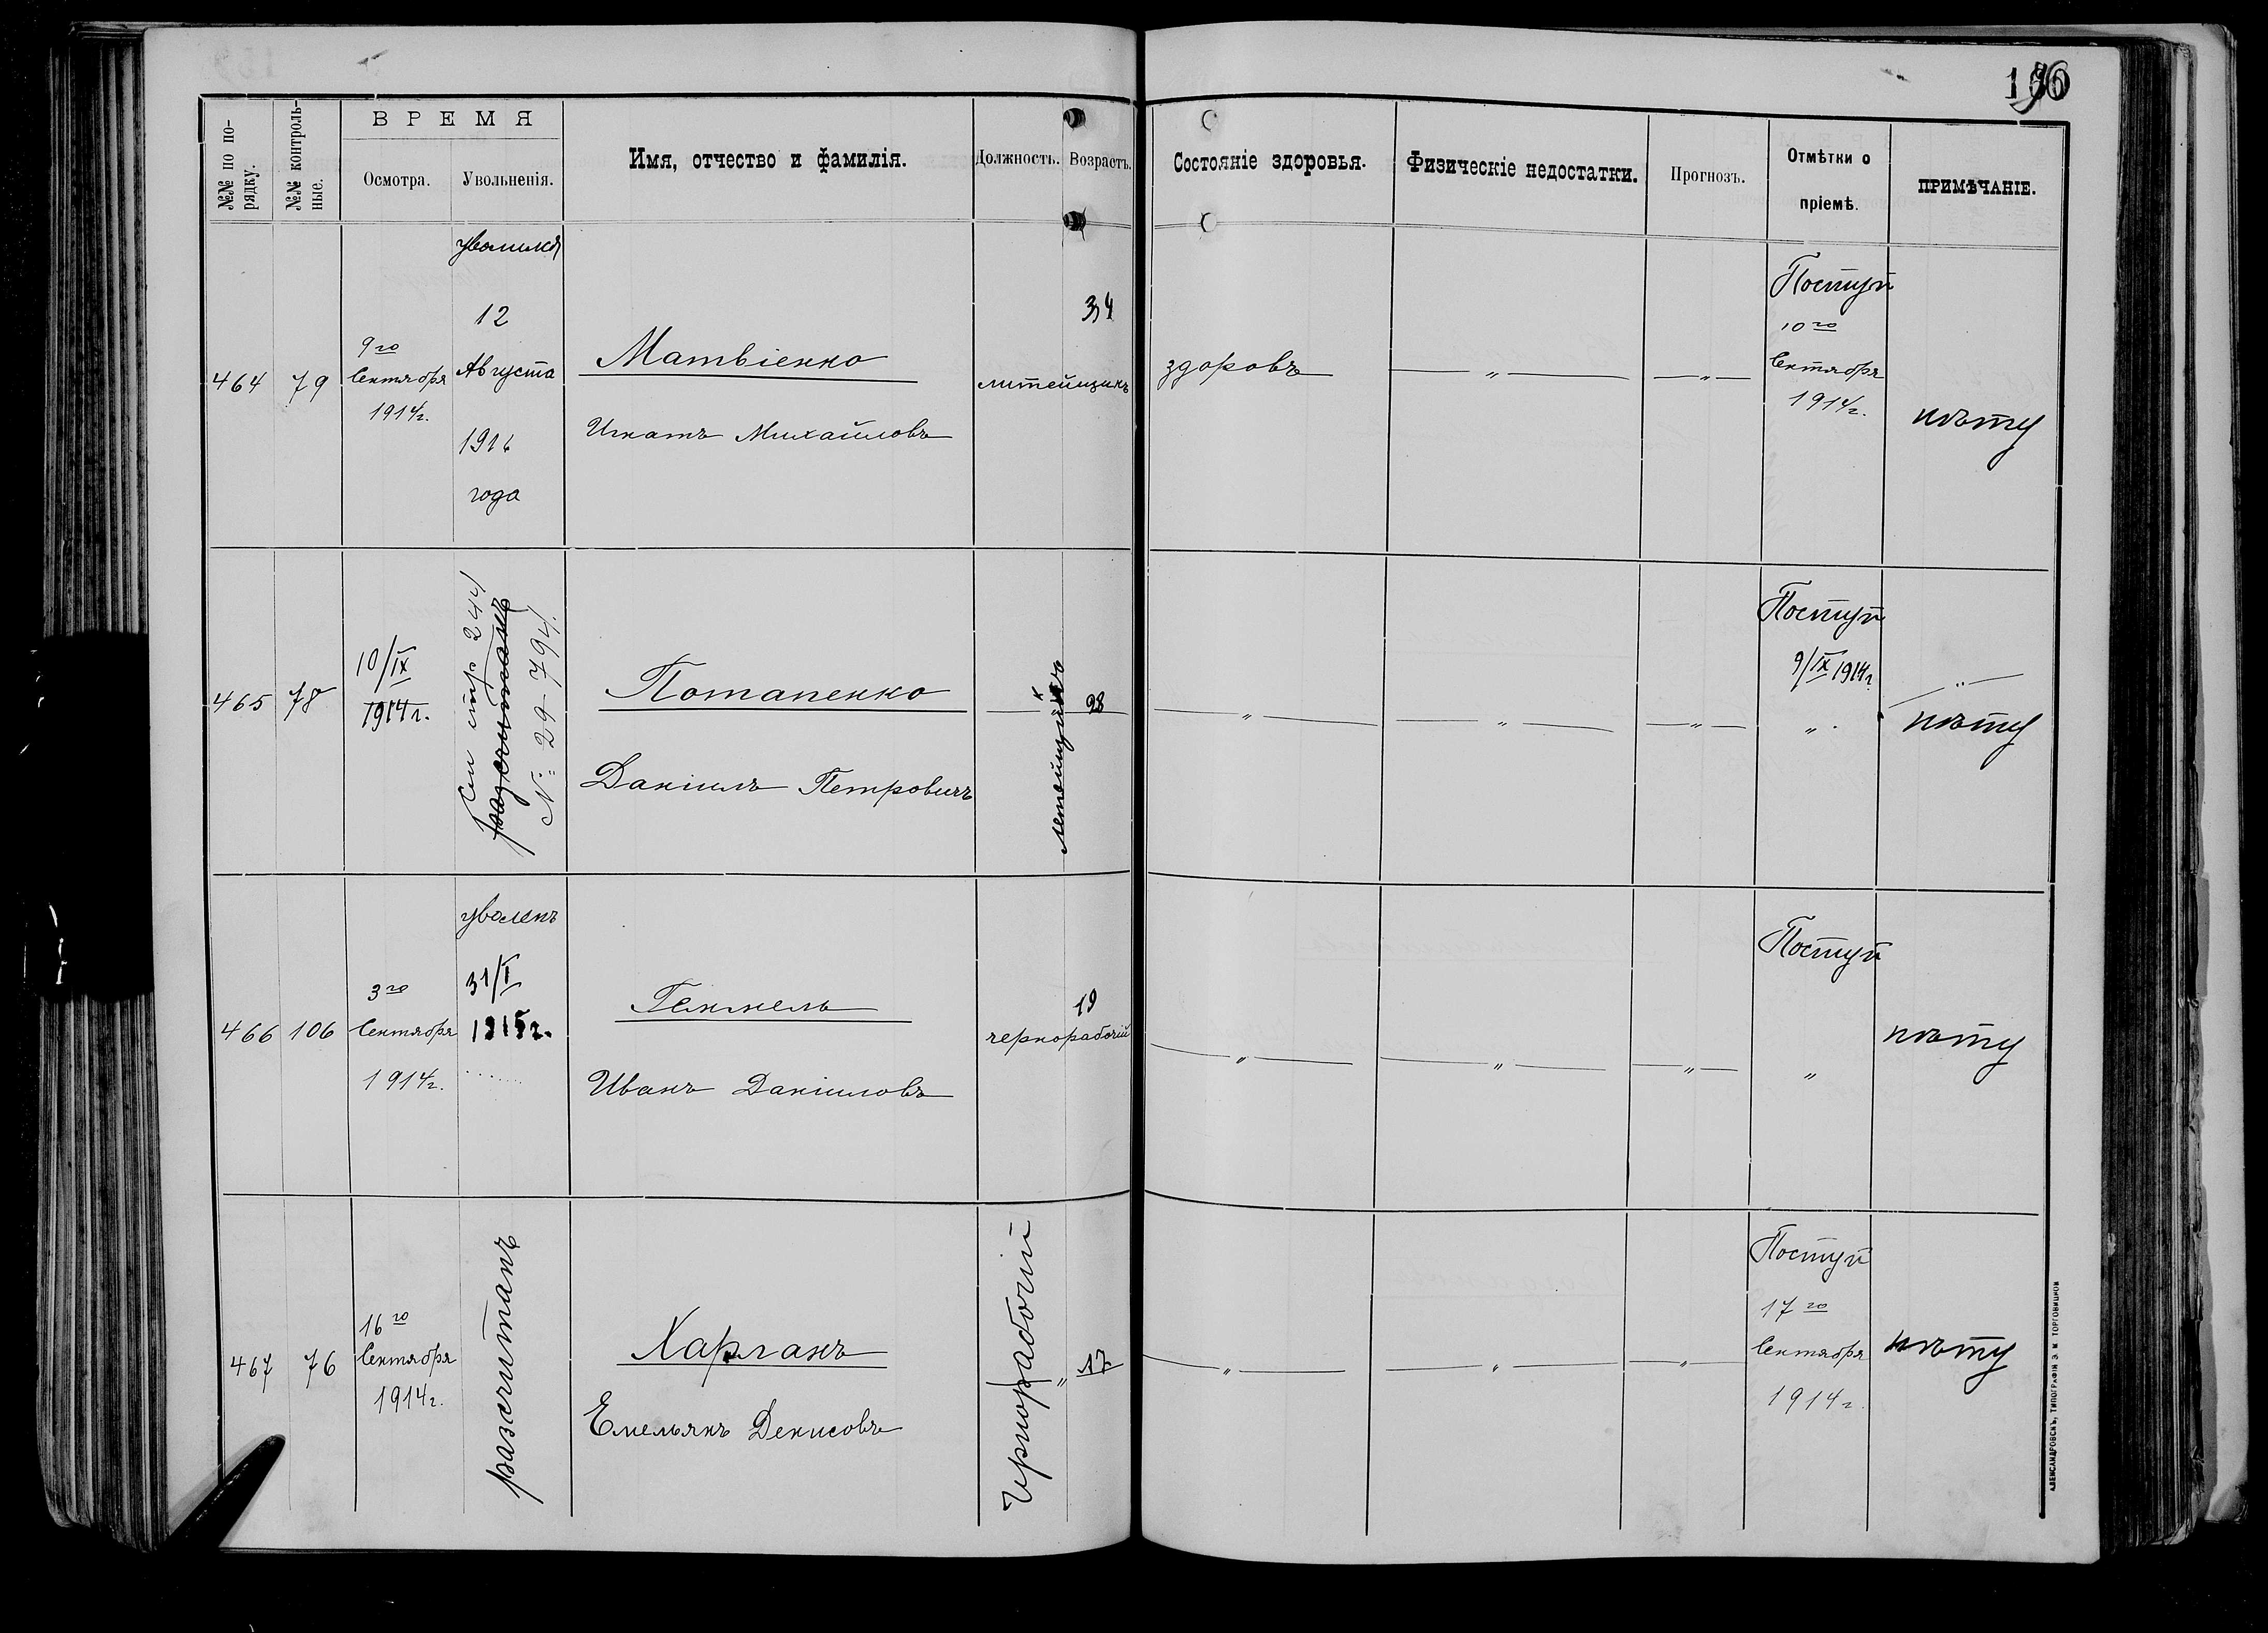 160
№№ по по-
рядку.
№№ контроль-
ные.
ВРЕМЯ
Осмотра.
Увольненія.
Имя, отчество и фамилія.
Должность.
Возрастъ.
Состояніе здоровья.
Физическіе недостатки.
Прогнозъ.
Отмѣтки о
пріемѣ.
ПРИМѢЧАНІЕ.
464
79
9го
Сентября
1914г.
уволился
12
Августа
1916
года
Матвіенко
Игнатъ Михайловъ
литейщикъ
34
здоровъ
— „ —
— „ —
Поступ
10го
Сентября
1914г.
нѣту
465
78
10/IX
1914г.
См стр 244
разсчитанъ
№ 29-794.
Потапенко
Даніилъ Петровичъ
литейщикъ
28
— „ —
— „ —
— „ —
Поступ
9/IX 1914г.
„
— „ —
нѣту
466
106
3го
Сентября
1914г.
уволенъ
31/I
1915г.
Геннель
Иванъ Даніиловъ
чернорабочій
19
— „ —
— „ —
— „ —
Поступ
„
нѣту
467
76
16го
Сентября
1914г.
разсчитанъ
Харланъ
Емельянъ Денисовъ
Чернорабочій
„
17
— „ —
— „ —
— „ —
Поступ
17го
Сентября
1914г.
нѣту
АЛЕКСАНДРОВСКЪ, ТИПОГРАФІЯ Э. М. ТОРГОВИЦКОЙ